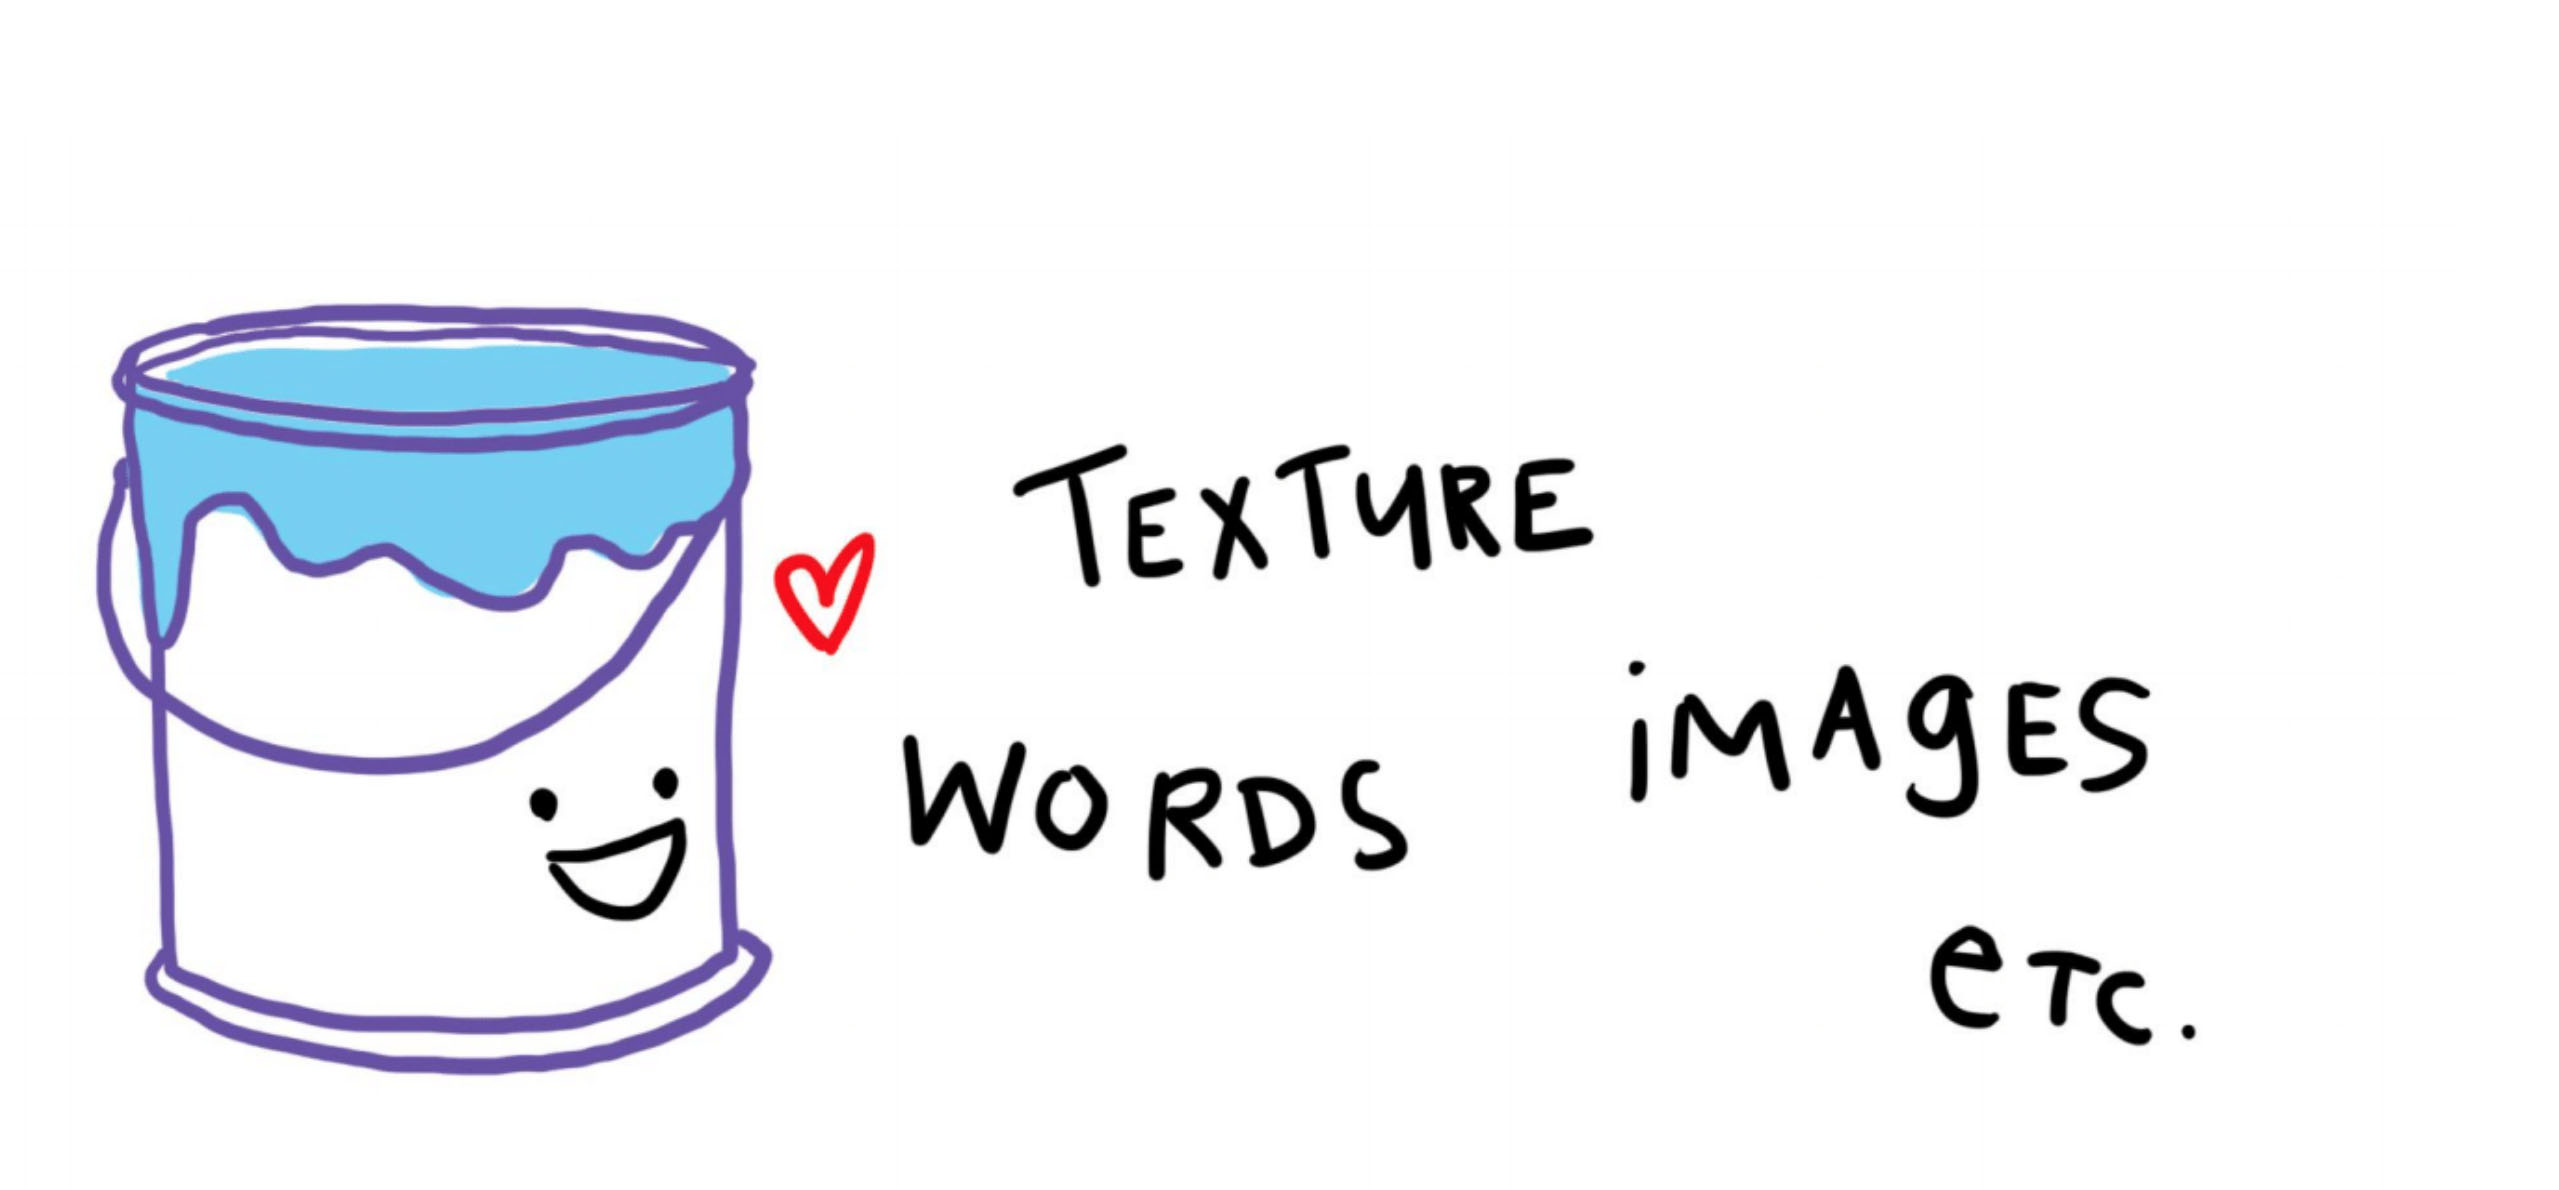 TEXTURE
WORDS
iMAgES
eTc.